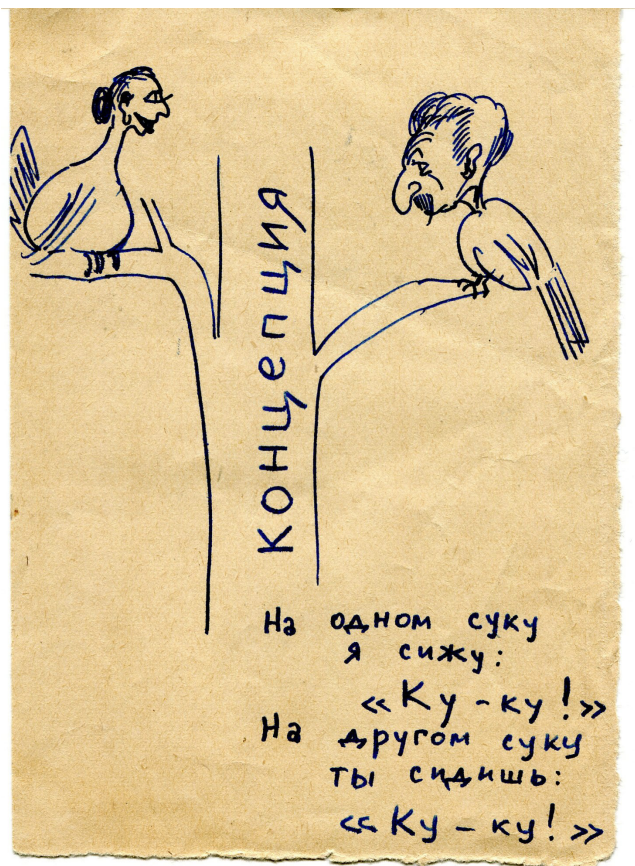 концепция
На одном суку
я сижу:
«Ку-ку!»
На другом суку
ты сидишь:
«Ку-ку!»